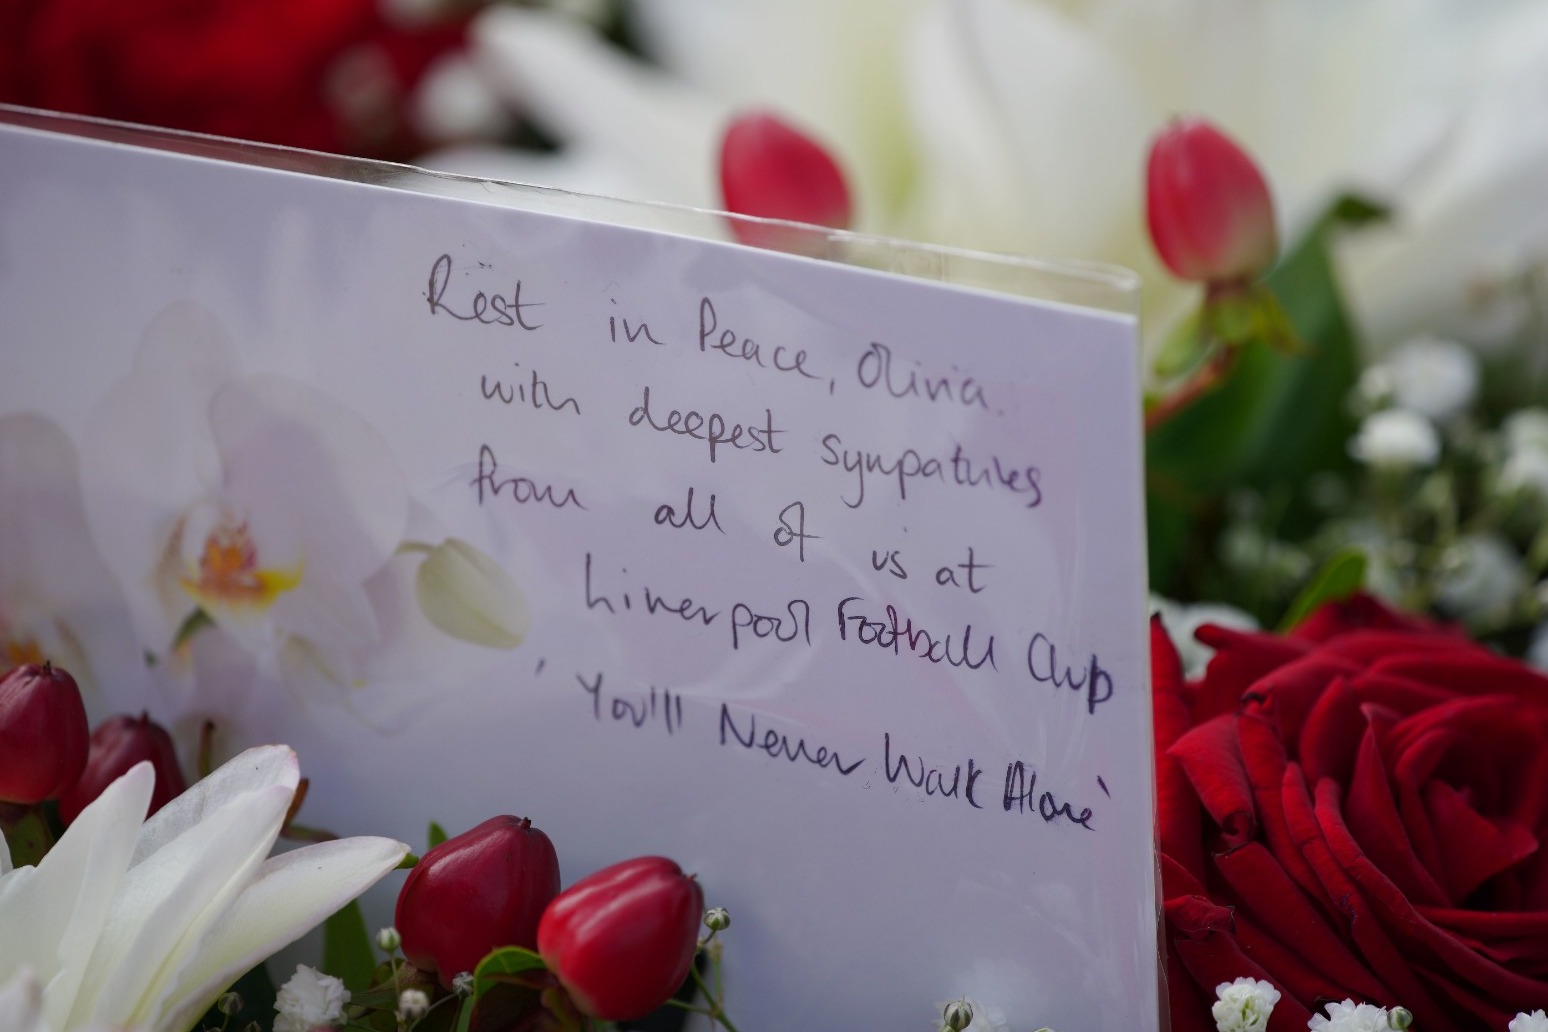 Rest in Peace, Olivia.
with deepest sympathies
from all of us at
Liverpool Football Club
'You'll Never Walk Alone'